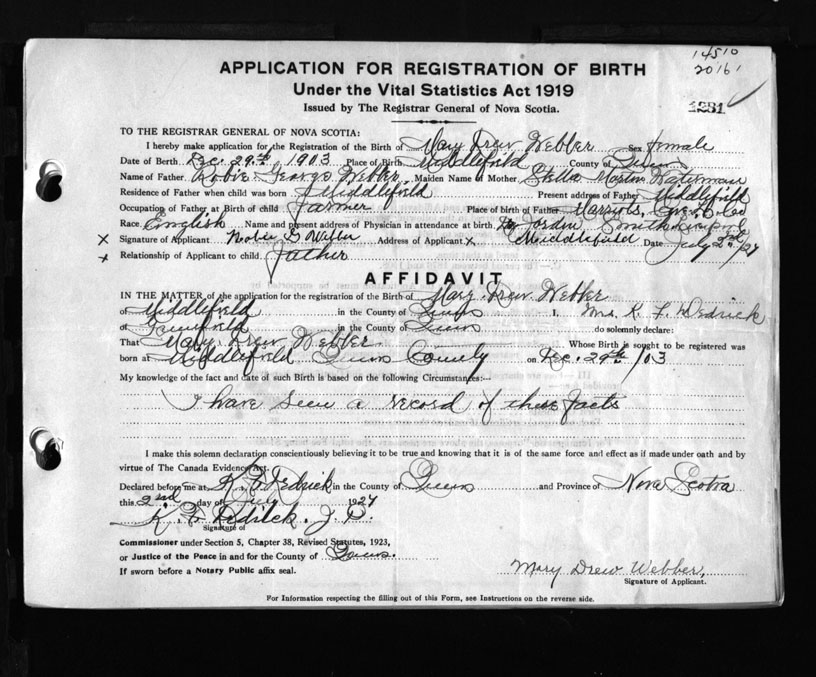 14510
20161
APPLICATION FOR REGISTRATION OF BIRTH
Under the Vital Statistics Act 1919
Issued by The Registrar General of Nova Scotia.
1281
TO THE REGISTRAR GENERAL OF NOVA SCOTIA:
I hereby make application for the Registration of the Birth of Mary Drew Webber Sex female
Date of Birth Dec. 29th 1903 Place of Birth Middlefield County of Queens
Name of Father George Webber Maiden Name of Mother Stella Waterman
Residence of Father when child was born Middlefield Present address of Father Middlefield
Occupation of Father at Birth of child Farmer Place of birth of Father
Race English Name and present address of Physician in attendance at birth
x Signature of Applicant Address of Applicant x Middlefield Date July 2nd /27
x Relationship of Applicant to child Father
AFFIDAVIT
IN THE MATTER of the application for the registration of the Birth of Mary Drew Webber
of Middlefield in the County of Queens I, Mrs. K. F. Dedrick
of in the County of Queens do solemnly declare:
That Mary Drew Webber Whose Birth is sought to be registered was
born at Middlefield Queens County on Dec. 29th /03
My knowledge of the fact and date of such Birth is based on the following Circumstances:--
I have seen a record of these facts
I make this solemn declaration conscientiously believing it to be true and knowing that it is of the same force and effect as if made under oath and by
virtue of The Canada Evidence Act.
Declared before me at in the County of Queens and Province of Nova Scotia
this 2nd day of July 1927
K. F. Dedrick. J. P.
Signature of
Commissioner under Section 5, Chapter 38, Revised Statutes, 1923,
or Justice of the Peace in and for the County of Queens.
If sworn before a Notary Public affix seal.
Mary Drew Webber,
Signature of Applicant.
For Information respecting the filling out of this Form, see Instructions on the reverse side.